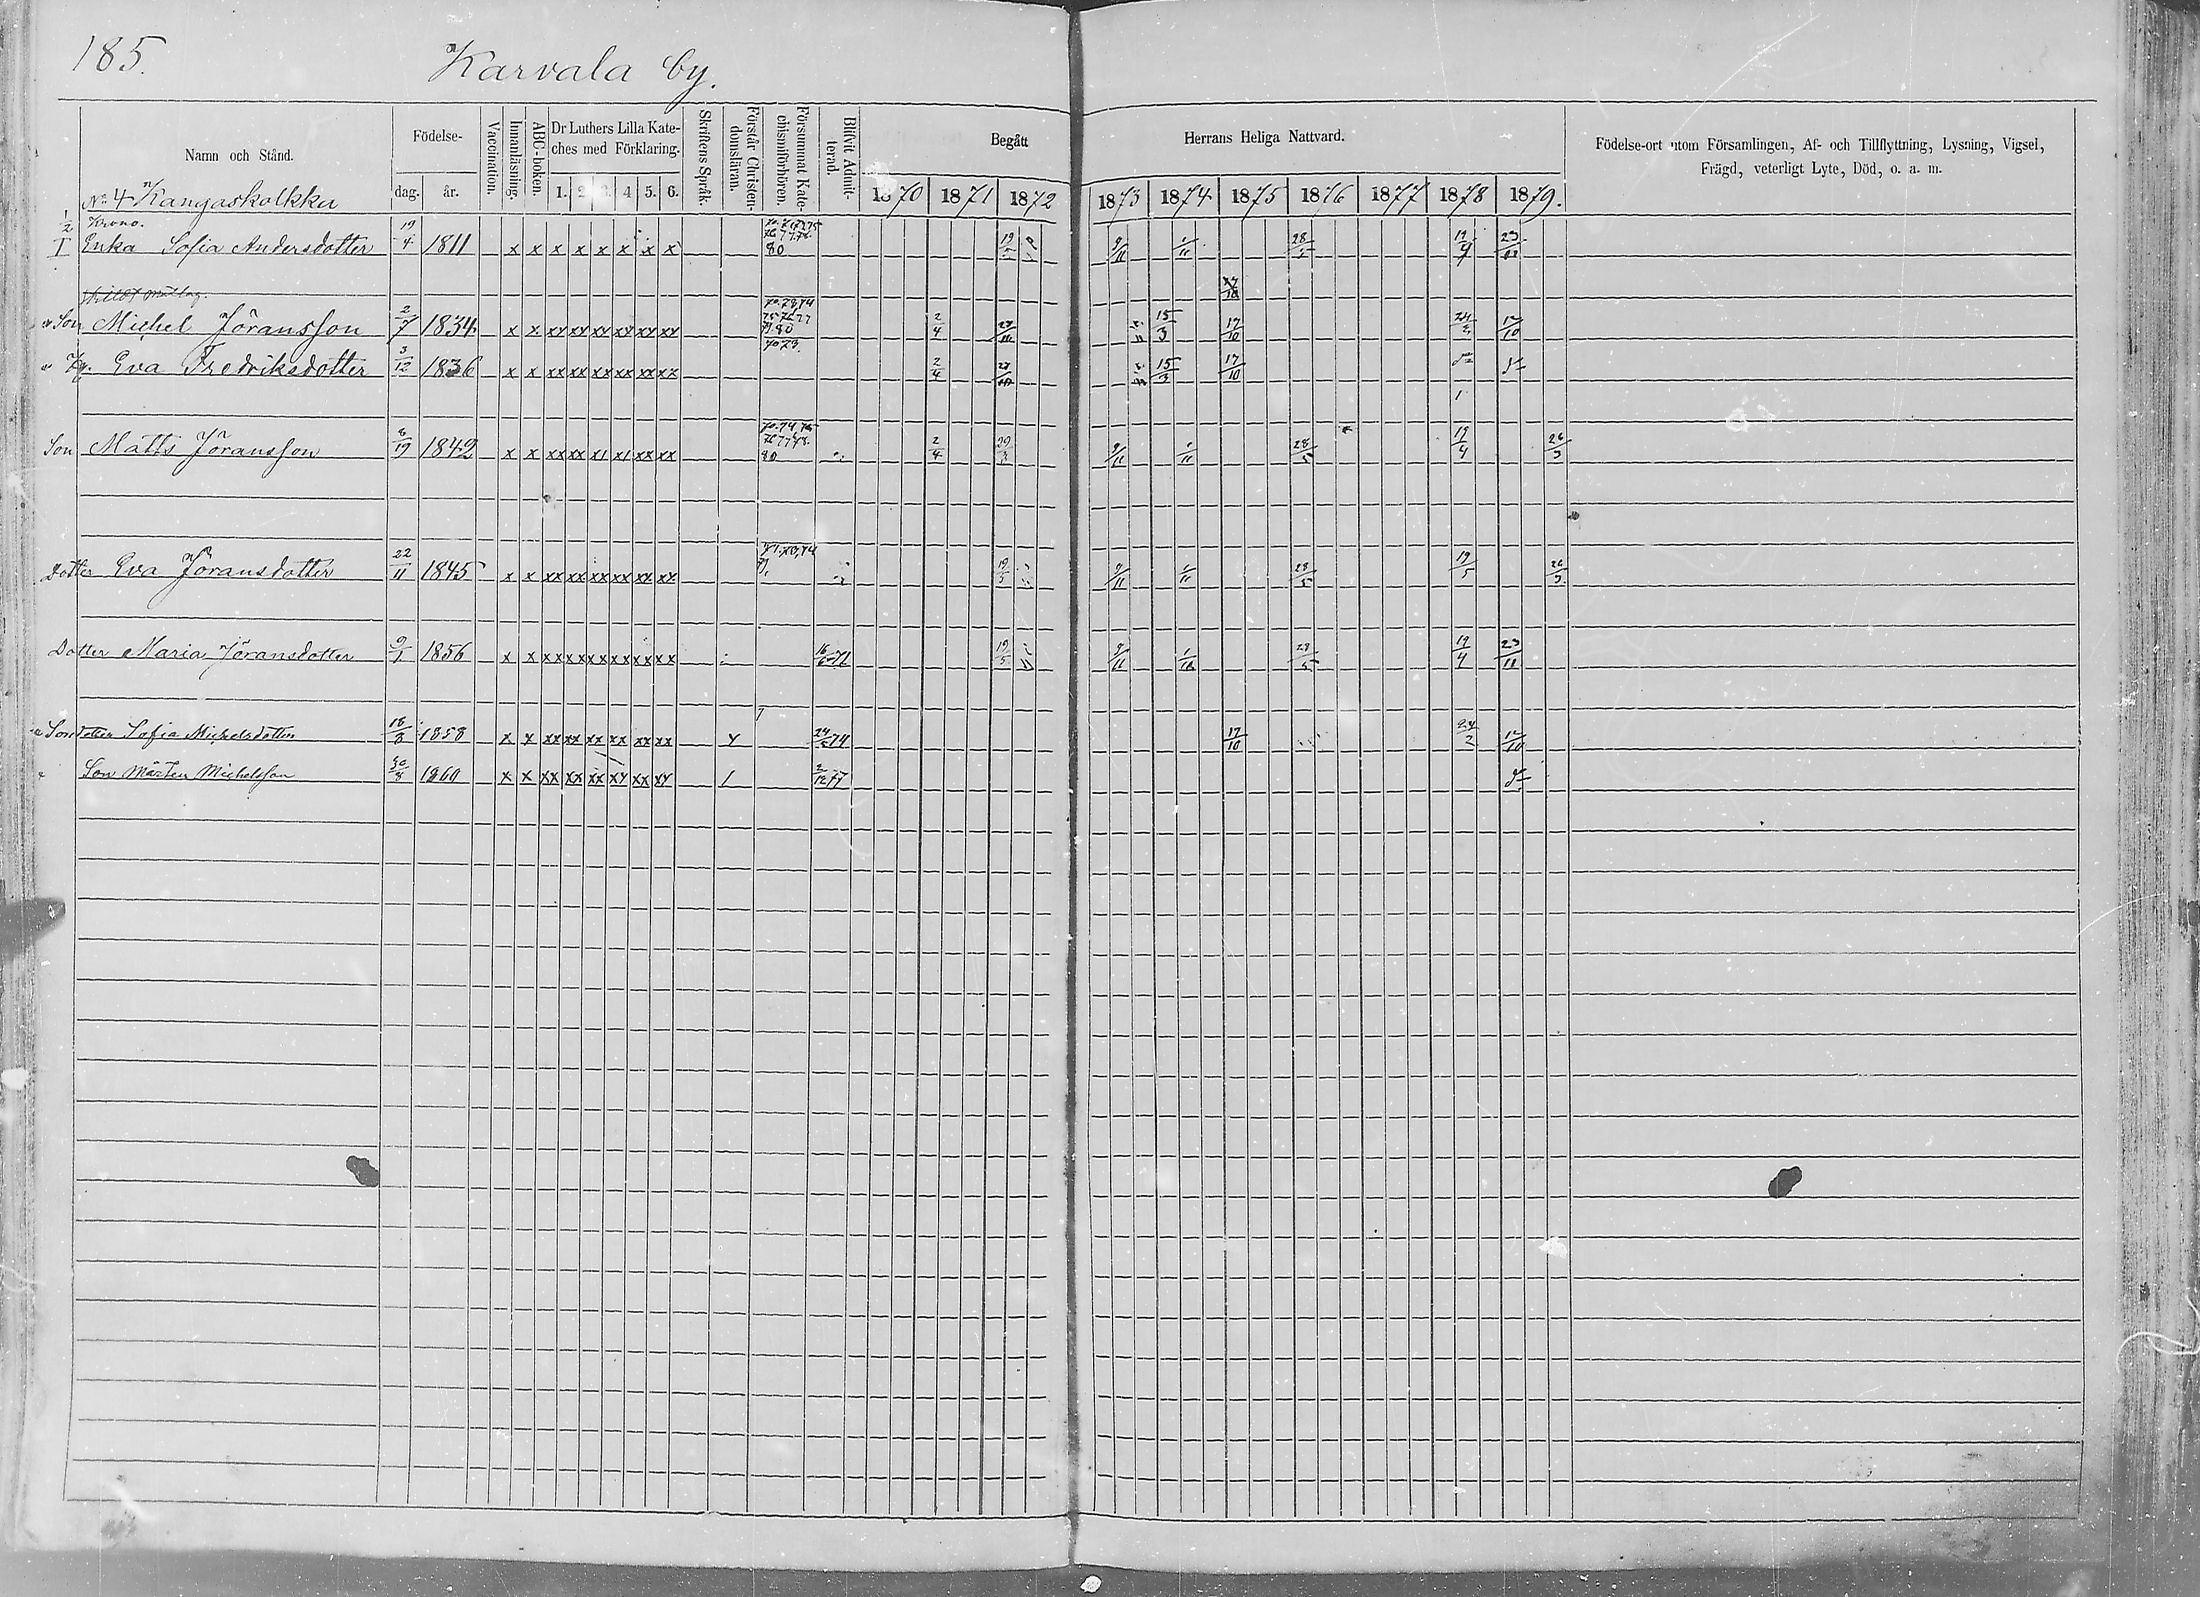 185.
Karvala by.
Namn och Stånd.
Födelse-
dag. år.
Vaccination.
Innanläsning.
ABC-boken.
Dr Luthers Lilla Kate-
ches med Förklaring.
1. 2 3. 4 5. 6.
Skriftens Språk.
Förstår Christen-
domsläran.
Försummat Kate-
chismiförhören.
Blifvit Admit-
terad.
Begått Herrans Heliga Nattvard.
1870 1871 1872 1873 1874 1875 1876 1877 1878 1879.
Födelse-ort utom Församlingen, Af- och Tillflyttning, Lysning, Vigsel,
Frägd, veterligt Lyte, Död, o. a. m.
No 4 Kangaskolkka
1/2 Krono.
I Enka Sofia Andersdotter 19/4 1811 x x x x x x x x 80 19/5 9/11 1/11 28/5 19/4 23/11
17/10
Son Michel Jöransson 2/7 1834 x x xx xx xx xx xx xx 80 2/4 15/3 17/10 24/2 12/10
Eva Fredriksdotter 3/12 1836 x x xx xx xx xx xx xx 70 73. 2/4 15/3 17/10
Son Matts Jöransson 1842 x x xx xx x1 x1 xx xx 80 2/4 9/11 1/11 28/5 19/4 26/3
Dotter Eva Jöransdotter 22/11 1845 x x xx xx xx xx xx xx 19/5 9/11 1/11 28/5 19/5 26/3
Dotter Maria Jöransdotter 9/1 1856 x x xx xx xx xx xx xx 16/6 71 19/5 9/11 28/5 19/4 23/11
Sondotter Sofia Michelsdotter 18/8 1858 x x xx xx xx xx xx xx 24/5 74 17/10 24/2 12/10
Son Mårten Michelsson 30/8 1860 x x xx xx xx xx xx xx 2/12 77